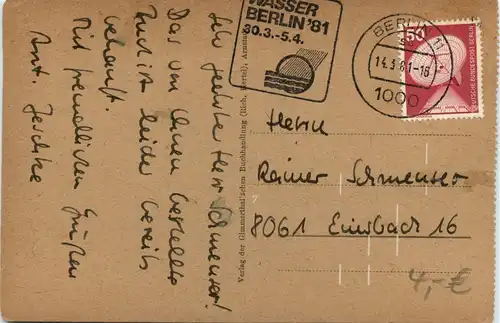 WASSER
BERLIN '81
30.3.-5.4.
BERLIN 11
14.3.81-18
1000
50
DEUTSCHE BUNDESPOST BERLIN
Sehr geehrter Herr Schmenser!
Das von Ihnen bestellte
Buch ist leider bereits
verkauft.
Mit freundlichen Grüßen
Ant. Jeschke
Verlag der Glimmerthal'schen Buchhandlung
Herrn
Rainer Schmenser
8061 Einsbach 16
4,-€